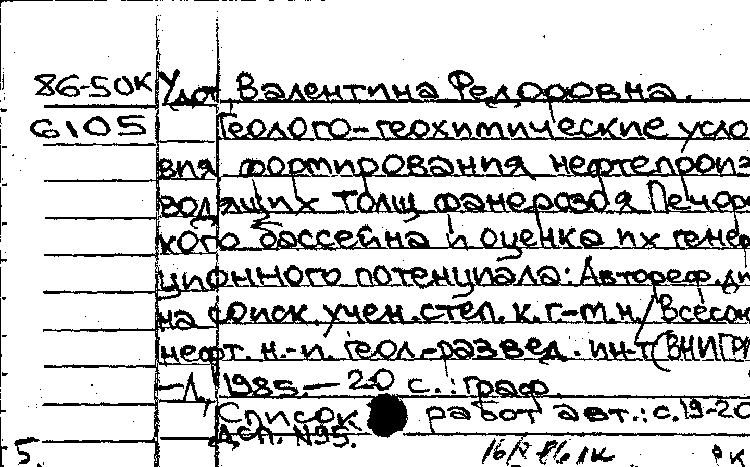 86-50к Удот Валентина Федоровна.
6105 Геолого-геохимические усло
вия формирования нефтепроиз
водящих толщ фанерозоя Печорс
кого бассейна и оценка их генер
ционного потенциала: Автореф. ди
на соиск. учен. степ. к. г.-м. н. / Всесоюз
нефт. н.-и. геол.-развед. ин-т (ВНИГРИ
-Л., 1985. - 20 с.: граф.
Список работ авт.: с. 19-20
Д
5. 16/ 86. РК